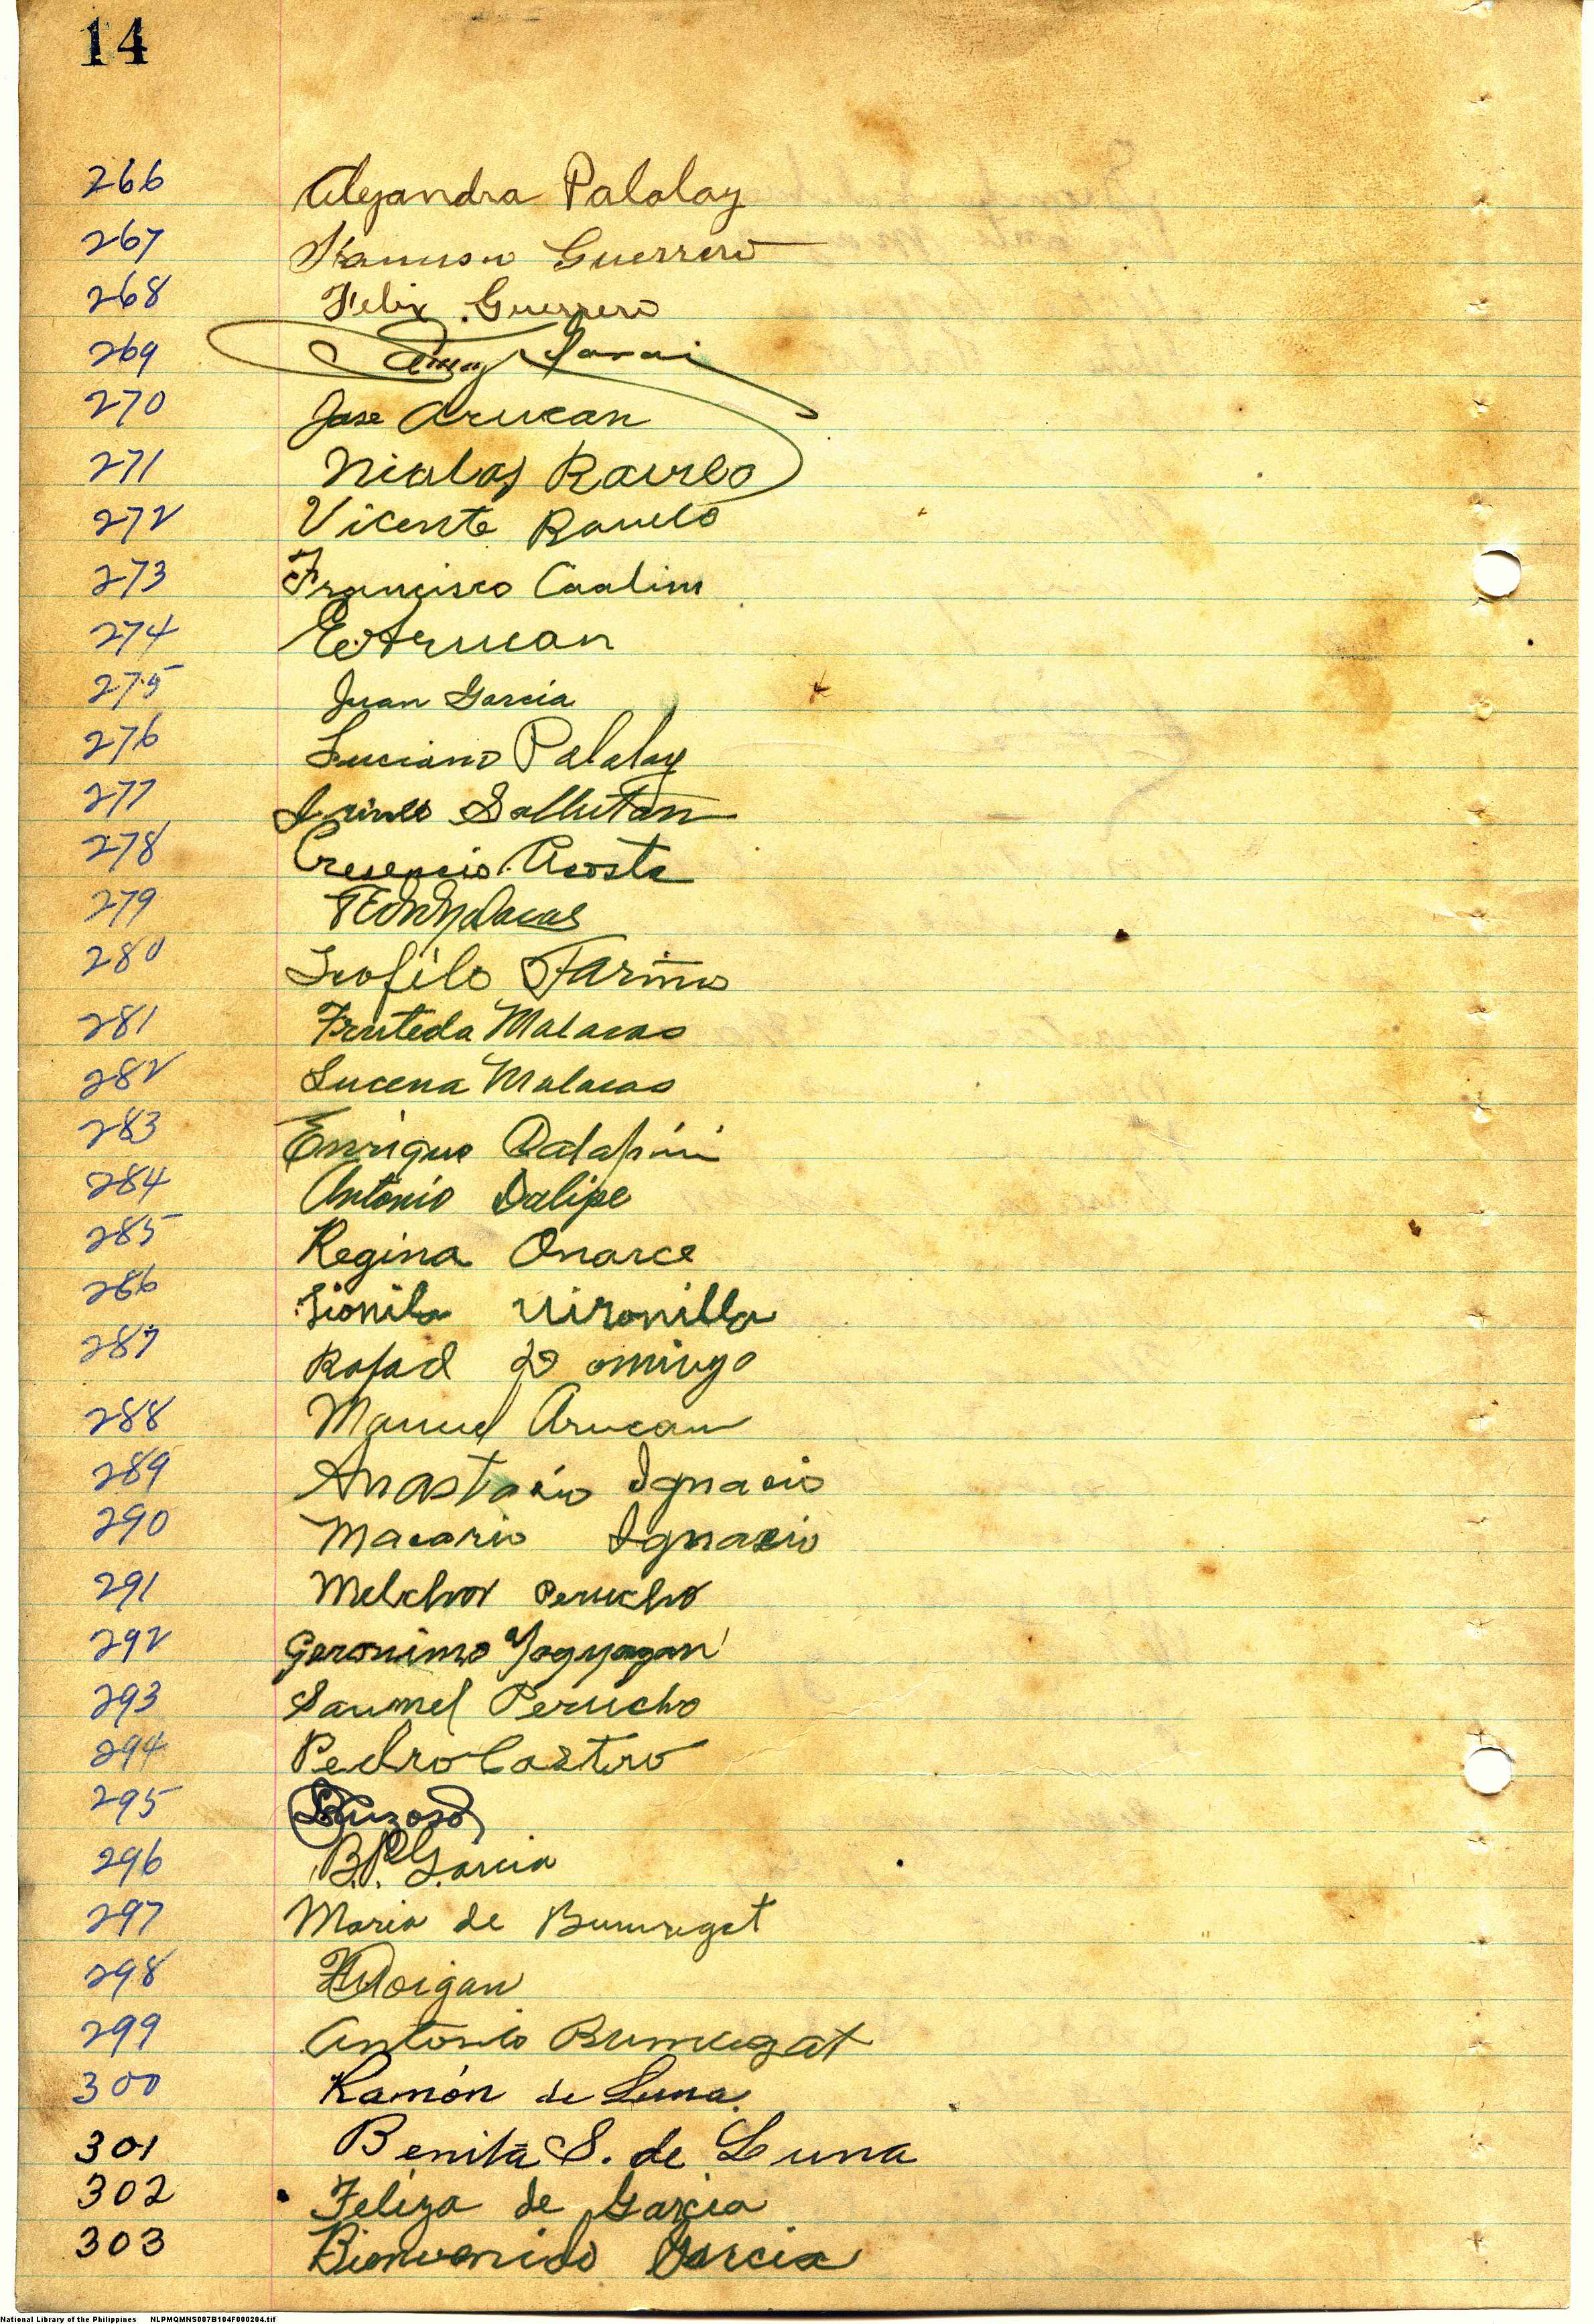 14
266 Alejandra Palalay
267 Guerrero
268 Felix Guerrero
269
270 Jose Arucan
271 Nicolas Ravelo
272 Vicente Ravelo
273 Francisco Caalim
274 E. Arucan
275 Juan Garcia
276 Luciano Palalay
277
278 Cresencio Acosta
279
280 Teofilo Fariñas
281 Fruteda Malacas
282 Lucena Malacas
283 Enrique
284 Antonio Dalipe
285 Regina Onarce
286 Lionila Vironilla
287 Rafael Domingo
288 Manuel Arucan
289 Anastacio Ignacio
290 Macario Ignacio
291 Melchor Perucho
292 Geronimo Yogyagan
293 Samuel Perucho
294 Pedro Castro
295
296 B.P. Garcia
297 Maria de Bumuegat
298
299 Antonio Bumuegat
300 Ramón de Luna.
301 Benita S. de Luna
302 Feliza de Garcia
303 Bienvenido Garcia
National Library of the Philippines NLPMQMNS007B104F000204.tif